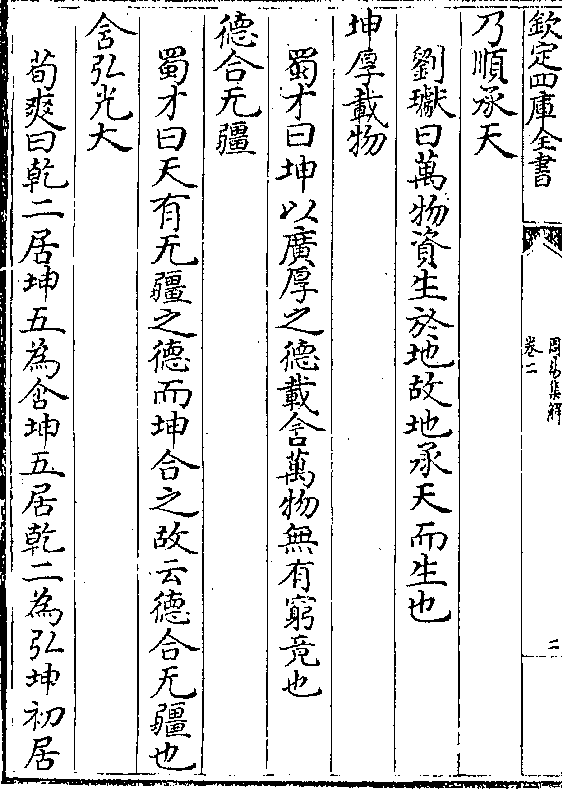 欽定四庫全書
周易集解
卷二
二
乃順承天
劉瓛曰萬物資生於地故地承天而生也
坤厚載物
蜀才曰坤以廣厚之德載含萬物無有窮竟也
德合无疆
蜀才曰天有无疆之德而坤合之故云德合无疆也
含弘光大
荀爽曰乾二居坤五為含坤五居乾二為弘坤初居